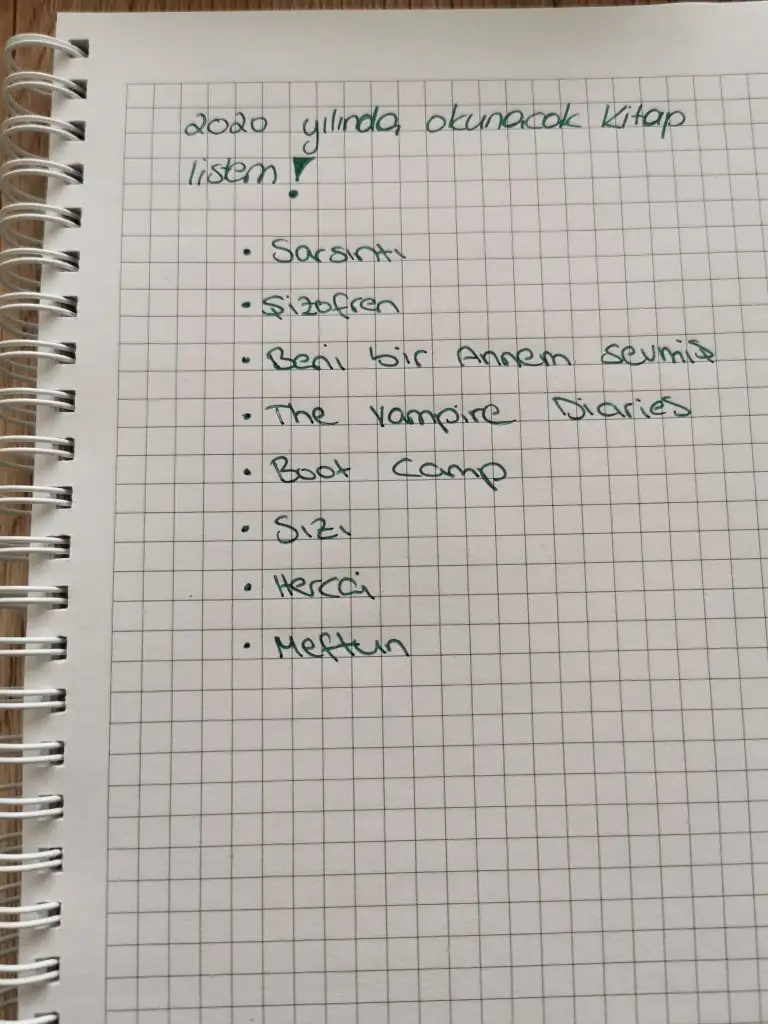 2020 yılında okunacak kitap
listem!
• Sarsıntı
• Şizofren
• Beni bir Annem sevmiş
• The Vampire Diaries
• Boot Camp
• Sızı
• Hercai
• Meftun